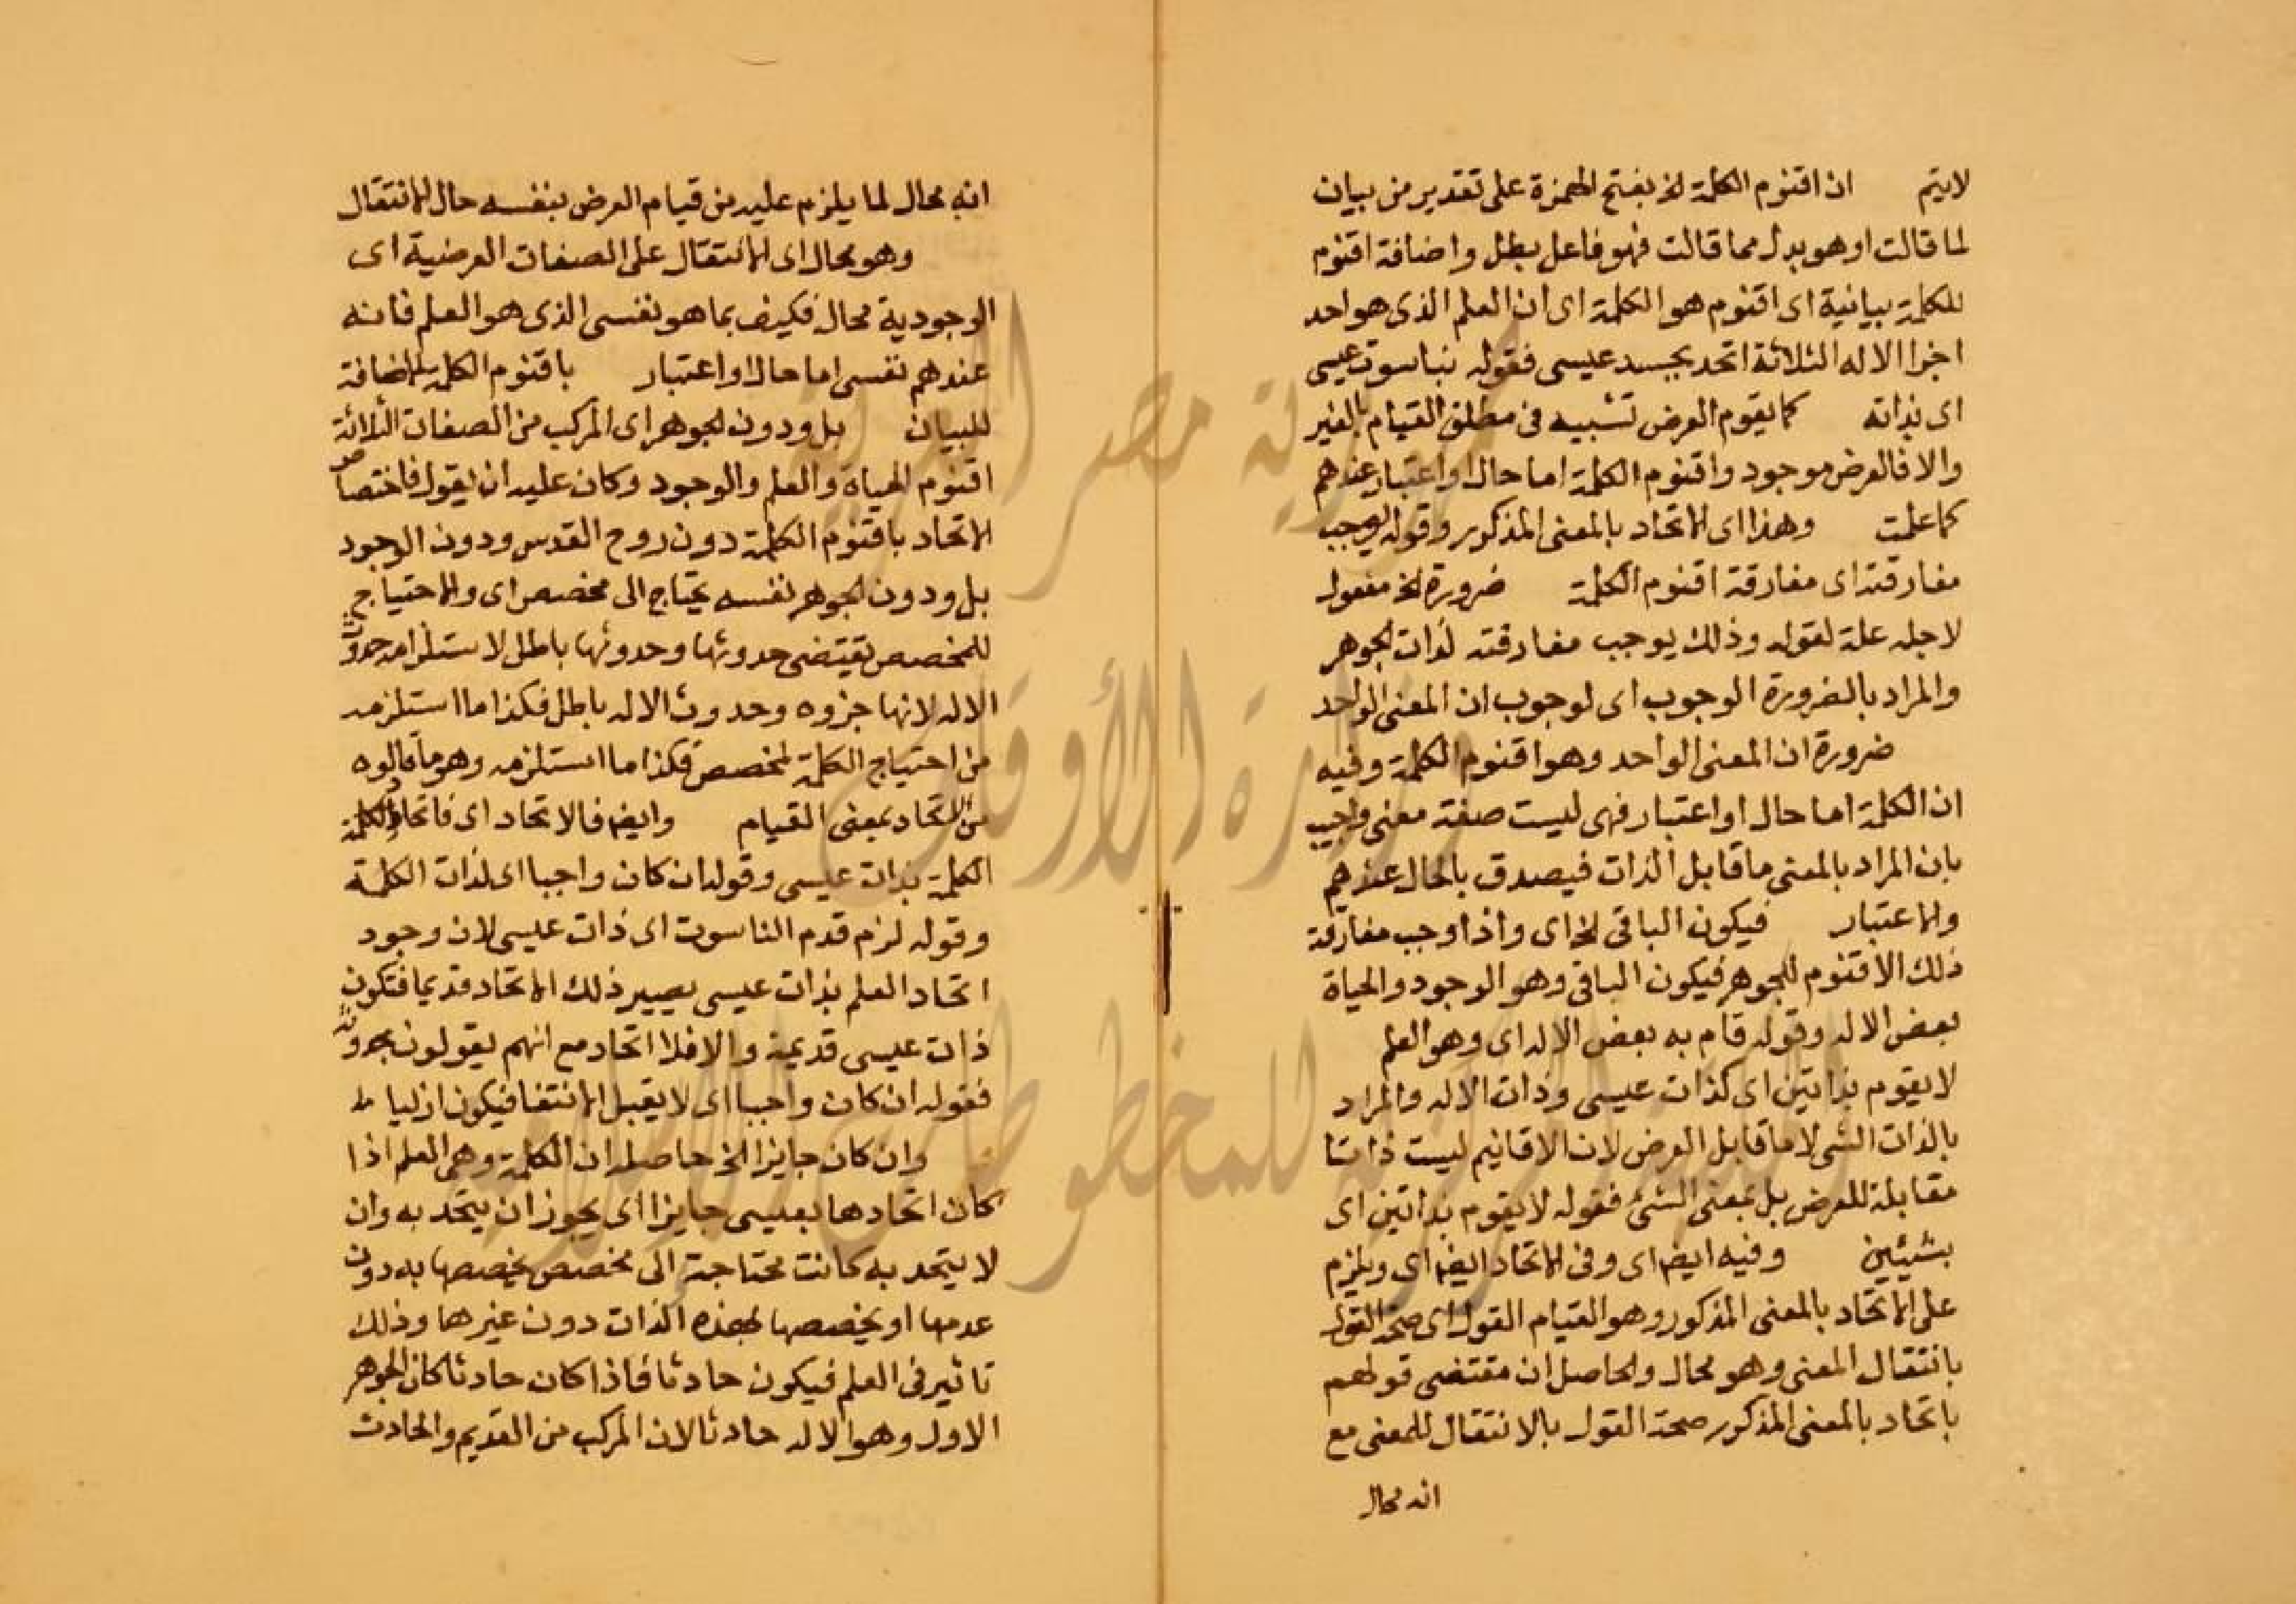 لا يتم ان اقنوم الكلمة الخ بفتح الهمزة على تقدير من بيان
لما قالت او هو بدل مما قالت فهو فاعل بطل واضافة اقنوم
للكلمة بيانية اى اقنوم هو الكلمة اى ان العلم الذى هو احد
اجزا الاله الثلاثة اتحد بجسد عيسى فقوله بناسوت عيسى
اى بذاته كما يقوم العرض تشبيه فى مطلق القيام بالغير
والا فالعرض موجود واقنوم الكلمة اما حال او اعتبار عندهم
كما علمت وهذا اى الاتحاد بالمعنى المذكور وقوله يوجب
مفارقته اى مفارقة اقنوم الكلمة ضرورة الخ مفعول
لاجله علة لقوله وذلك يوجب مفارقته لذات الجوهر
والمراد بالضرورة الوجوب اى لوجوب ان المعنى الواحد
ضرورة ان المعنى الواحد وهو اقنوم الكلمة وفيه
ان الكلمة اما حال او اعتبار فهى ليست صفة معنى واجيب
بان المراد بالمعنى ما قابل الذات فيصدق بالحال عندهم
والاعتبار فيكون الباقى الخ اى واذا وجب مفارقة
ذلك الاقنوم للجوهر فيكون الباقى وهو الوجود والحياة
بعض الاله وقوله قام به بعض الاله اى وهو العلم
لا يقوم بذاتين اى كذات عيسى وذات الاله والمراد
بالذات الشى لا ما قابل العرض لان الاقانيم ليست ذاتا
مقابلة للعرض بل بمعنى الشئ فقوله لا يقوم بذاتين اى
بشيئين وفيه ايضا اى وفى الاتحاد ايضا اى ويلزم
على الاتحاد بالمعنى المذكور وهو القيام القول اى صحة القول
بانتقال المعنى وهو محال والحاصل ان مقتضى قولهم
باتحاد بالمعنى المذكور صحة القول بالانتقال للمعنى مع
انه محال
انه محال لما يلزم عليه من قيام العرض بنفسه حال الانتقال
وهو محال اى الانتقال على الصفات العرضية اى
الوجودية محال فكيف بما هو نفسى الذى هو العلم فانه
عندهم نفسى اما حال او اعتبار باقنوم الكلمة الاضافة
للبيان بل ودون الجوهر اى المركب من الصفات الثلاثة
اقنوم الحياة والعلم والوجود وكان عليه ان يقول فاختصاص
الاتحاد باقنوم الكلمة دون روح القدس ودون الوجود
بل ودون الجوهر نفسه يحتاج الى مخصص اى والاحتياج
للمخصص يقتضى حدوثها وحدوثها باطل لاستلزامه حدوث
الاله لانها جزوه وحدوث الاله باطل فكذا ما استلزمه
من احتياج الكلمة لمخصص فكذا ما استلزمه وهو ما قالوه
من الاتحاد بمعنى القيام وايضا فالاتحاد اى فاتحاد الكلمة
الكلمة بذات عيسى وقوله ان كان واجبا اى لذات الكلمة
وقوله لزم قدم الناسوت اى ذات عيسى لان وجود
اتحاد العلم بذات عيسى يصير ذلك الاتحاد قديما فتكون
ذات عيسى قديمة والا فلا اتحاد مع انهم يقولون بحدوثه
فقوله ان كان واجبا اى لا يقبل الانتفا فيكون ازليا
وان كان جايزا الخ حاصله ان الكلمة وهى العلم اذا
كان اتحادها بعيسى جايزا اى يجوز ان يتحد به وان
لا يتحد به كانت محتاجة الى مخصص يخصصها به دون
عدمها او يخصصها بهذه الذات دون غيرها وذلك
تاثير فى العلم فيكون حادثا فاذا كان حادثا كان الجوهر
الاول وهو الاله حادثا لان المركب من القديم والحادث